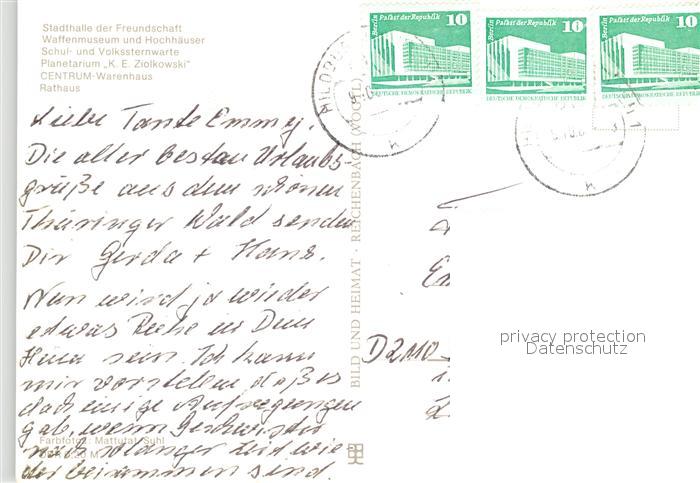 Stadthalle der Freundschaft
Waffenmuseum und Hochhäuser
Schul- und Volkssternwarte
Planetarium „K. E. Ziolkowski"
CENTRUM-Warenhaus
Rathaus
Berlin Palast der Republik 10
DEUTSCHE DEMOKRATISCHE REPUBLIK
Berlin Palast der Republik 10
DEUTSCHE DEMOKRATISCHE REPUBLIK
Berlin Palast der Republik 10
DEUTSCHE DEMOKRATISCHE REPUBLIK
Liebe Tante Emmy.
Die aller besten Urlaubs-
grüße aus dem schönen
Thüringer Wald senden
Dir Gerda + Hans.
Nun wird ja wieder
etwas Ruhe in Dein
Haus sein. Ich kann
mir vorstellen, daß es
doch einige Aufregungen
gab, wenn Geschwister
nach langer Zeit wie
der beisammen sind.
Farbfotos: Mattutat, Suhl
BILD UND HEIMAT · REICHENBACH (VOGTL)
D2110
privacy protection
Datenschutz